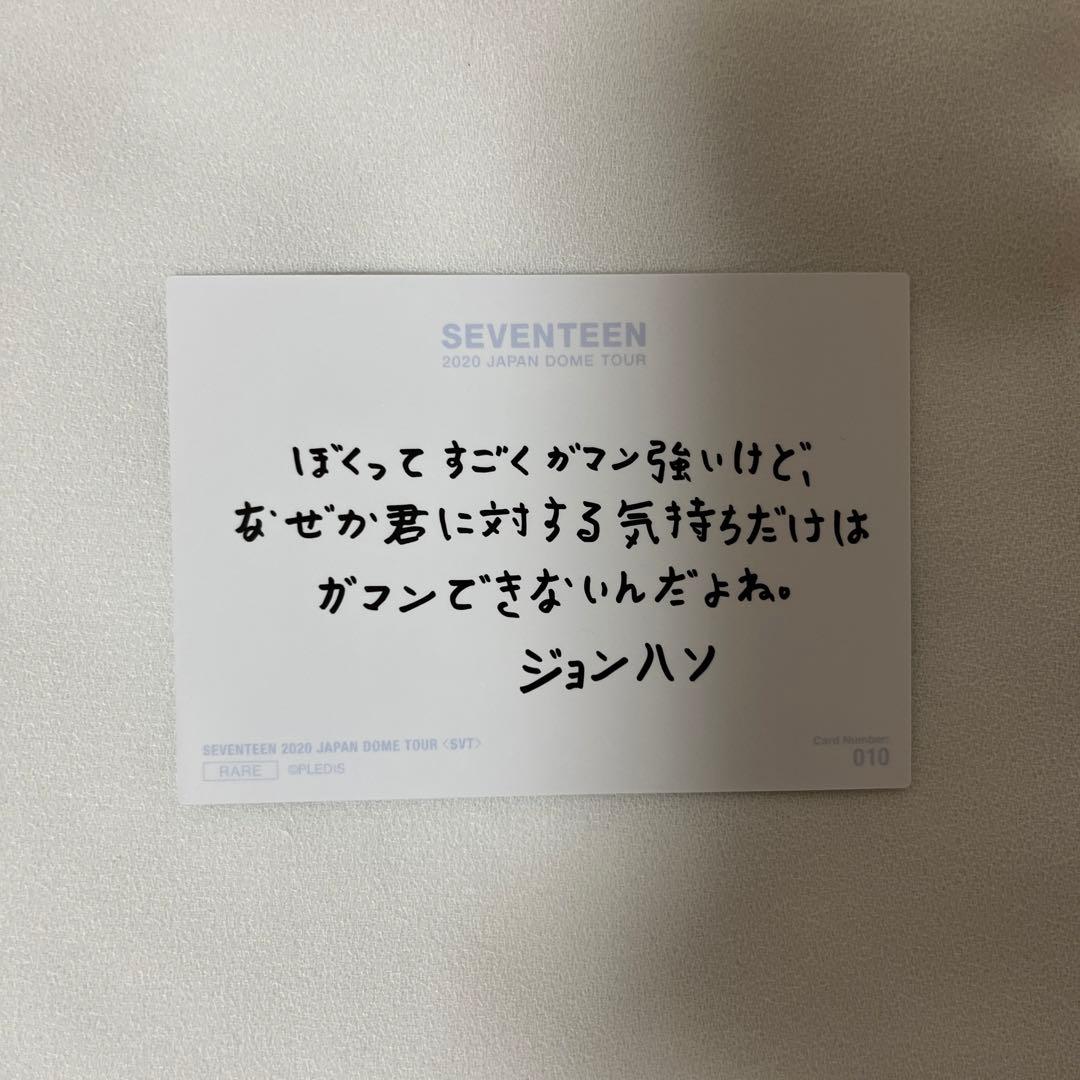 SEVENTEEN
2020 JAPAN DOME TOUR
ぼくってすごくガマン強いけど、
なぜか君に対する気持ちだけは
ガマンできないんだよね。
ジョンハン
SEVENTEEN 2020 JAPAN DOME TOUR〈SVT〉
RARE ©PLEDIS
Card Number:
010